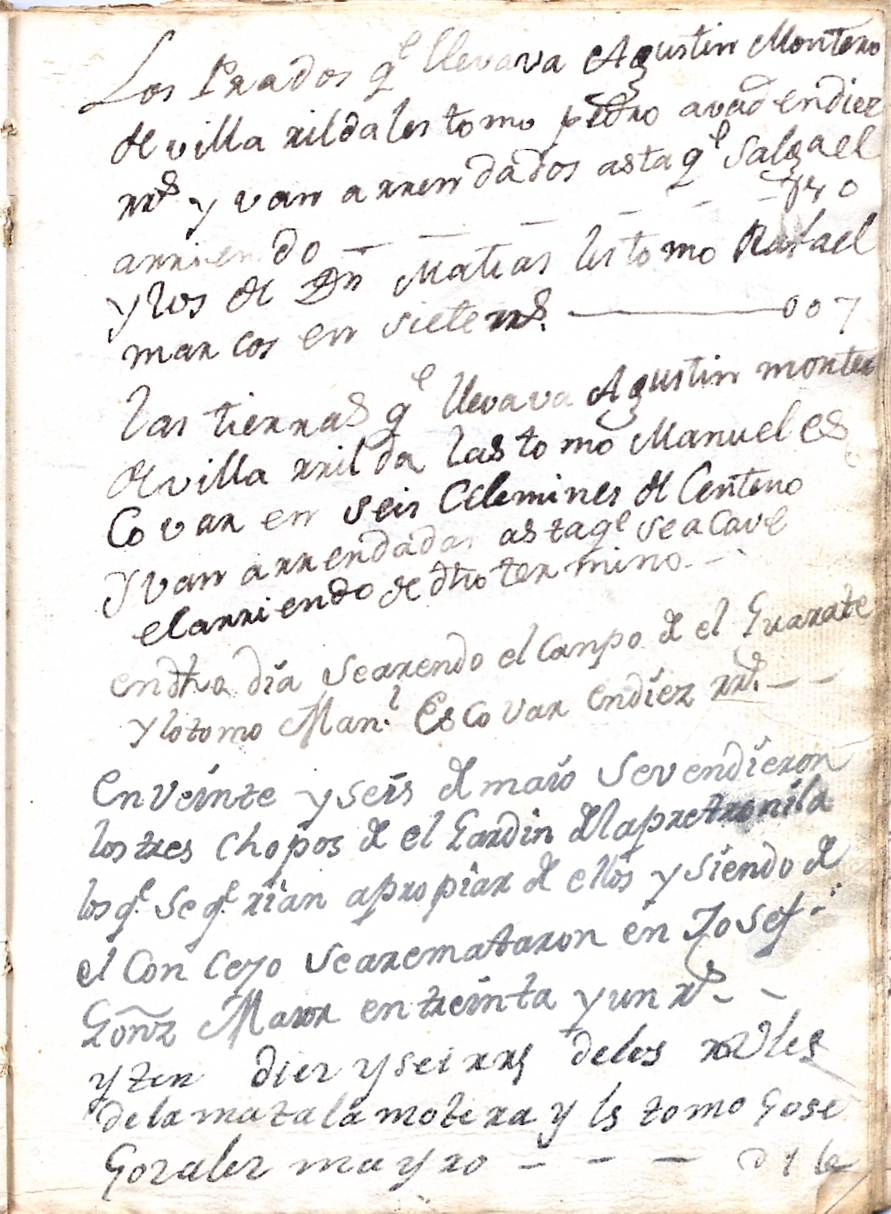 Los Prados qe llevava Agustin Montero
de villa rilda les tomo pedro avad en diez
rrs y van arrendados asta qe salga el
arriendo — — — — — — 010
y los de Dn Matias les tomo Rafael
marcos en siete rrs. ——— 007
las tierras qe llevava Agustin monter
de villa rrilda las tomo Manuel es
Covar en seis Celemines de Centeno
y van arrendadas asta qe se acave
el arriendo de dho termino. —
en dho dia se arendo el canpo de el Guarate
y lo tomo Man.l Escovar en diez rrs. — —
en veinte y seis de maio se vendieron
los tres chopos de el Gardin de la pretronila
los qe. se qe. rian apropiar de ellos y siendo de
el Conceyo se arremataron en Josef
Gonz Maior en treinta y un rs — —
yten diez y seis rrs de los robles
de la mata la motera y ls tomo Gose
Gozalez mayro — — — 016